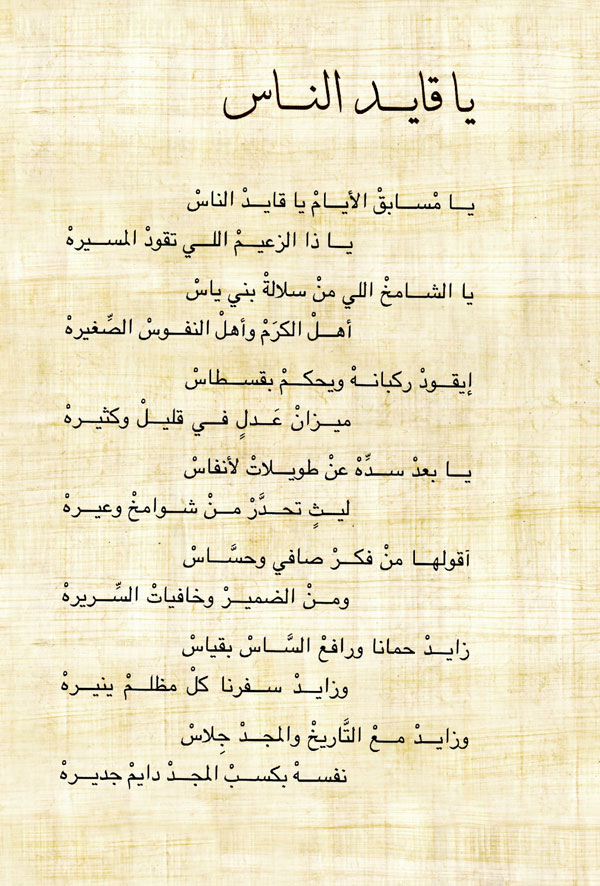 يا قايـد النـاس
يـا مْسـابقْ الأيـامْ يا قايـدْ الناسْ
يـا ذا الزعيـمْ اللـي تقودْ المسـيرهْ
يا الشـامخْ اللي منْ سلالةْ بني ياسْ
أهـلْ الكرَمْ وأهلْ النفـوسْ الصِّغيرهْ
إيقـودْ ركبانـهْ ويحكـمْ بقسـطاسْ
ميـزانْ عَـدلٍ فـي قليـلْ وكثيـرهْ
يـا بعدْ سـدِّهْ عنْ طويـلاتْ لأنفاسْ
ليـثٍ تحدَّرْ مـنْ شـوامخْ وعيـرهْ
آقولهـا منْ فكـرْ صافي وحسَّـاسْ
ومـنْ الضميـرْ وخافيـاتْ السِّـريرهْ
زايـدْ حمانا ورافعْ السَّـاسْ بقياسْ
وزايـدْ سـفرنا كلْ مظلـمْ ينيـرهْ
وزايـدْ مـعْ التَّاريخْ والمجـدْ جِلاسْ
نفسـهْ بكسـبْ المجـدْ دايمْ جديـرهْ